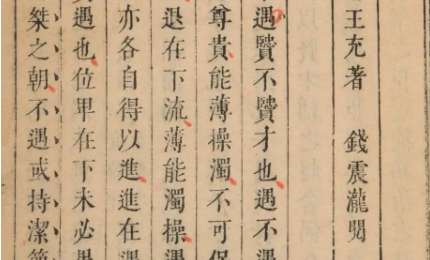 王充著 錢震瀧閲
遇贒不贒才也遇不遇
尊貴能薄操濁不可保
退在下流薄能濁操遇
亦各自得以進進在遇
遇也位卑在下未必愚
桀之朝不遇或持潔節